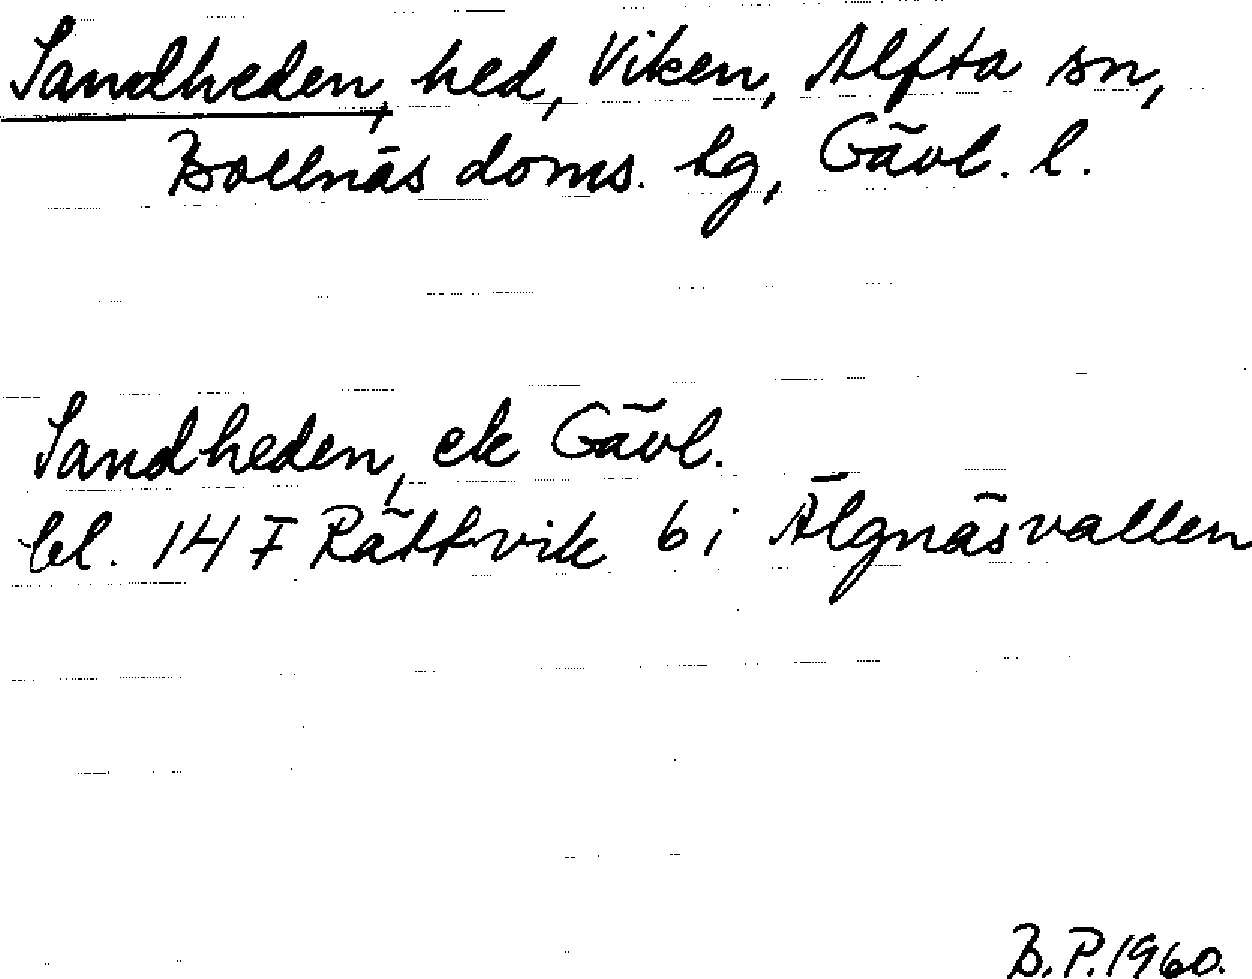 Sandheden, hed, Viken, Alfta sn,
Bollnäs doms. hg, Gävl. l.
Sandheden, ek Gävl.
bl. 14 F Rättvik 6 i Älgnäsvallen
B.P. 1960.